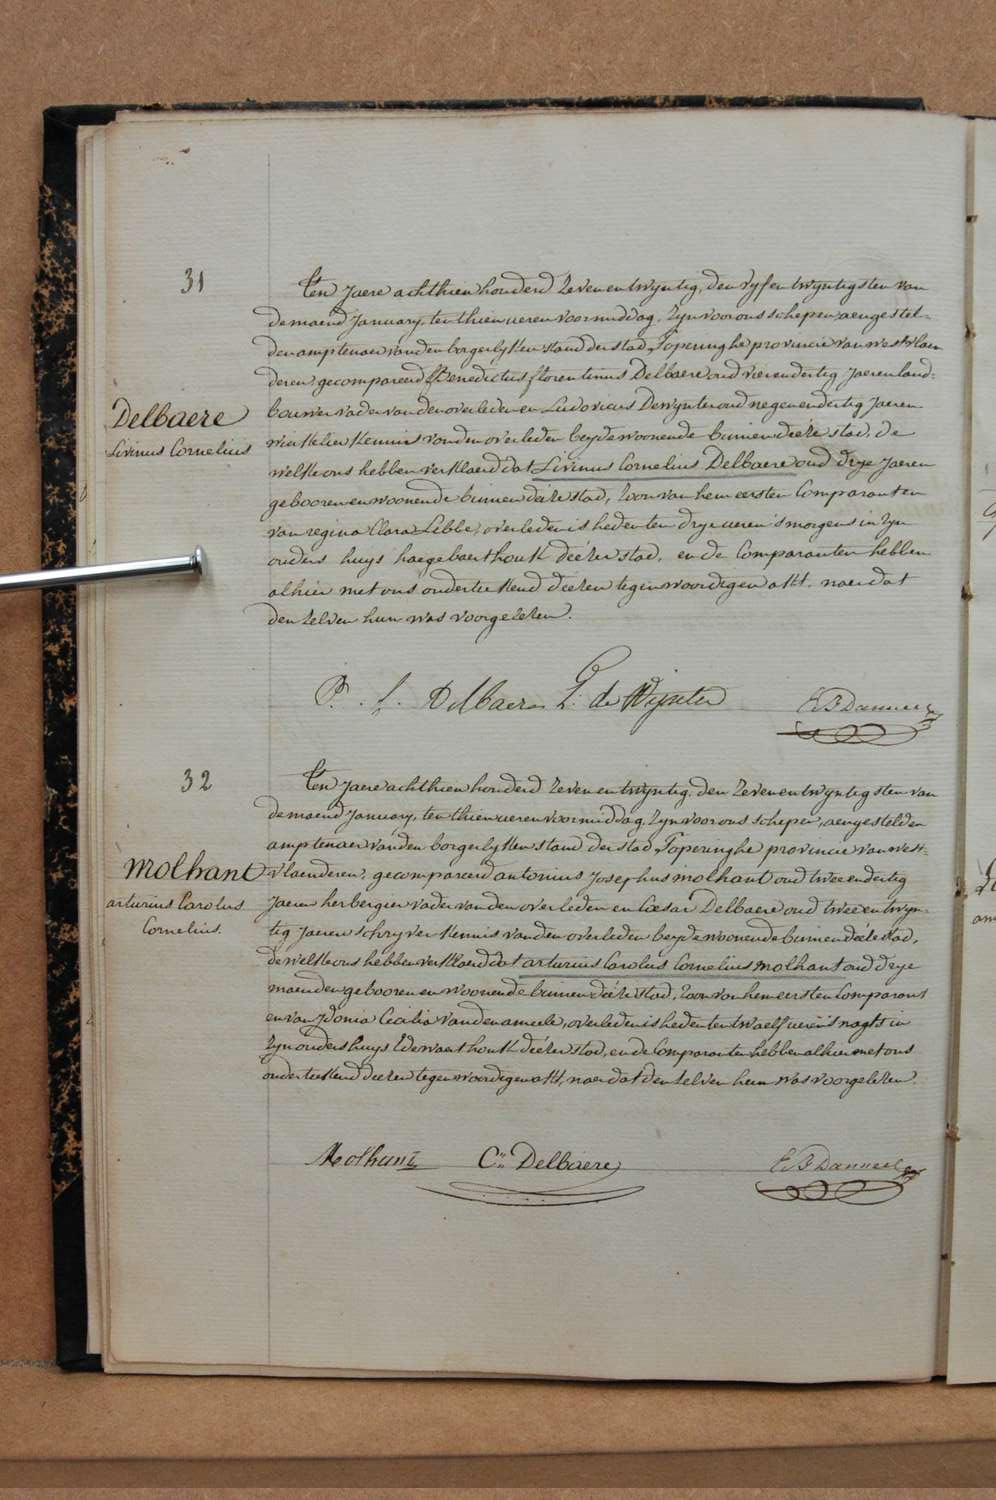 31
Ten Jaere achthien honderd Zeven en twyntig, den vyf en twyntigsten van
de maend January, ten thien ueren voormiddag, Zyn voor ons schepen, aengestel-
den amptenaer van den borgerlyken stand der stad Poperinghe provincie van westvlaen
deren, gecompareerd Benedictus florentinus Delbaere oud vierendertig Jaeren land-
Delbaere
Livinus Cornelius
bouwer vader van den overleden en Ludovicus Dewynter oud negenendertig Jaeren
werkelier kennis van den overleden beyde woonende binnen deéze stad, de
welke ons hebben verklaerd dat Livinus Cornelius Delbaere oud drye Jaeren
gebooren en woonende binnen deéze stad, Zoon van hem eersten Comparant en
van regina Clara Lebbe, overleden is heden ten drye ueren 's morgens in Zyn
ouders huys haegebaerthouk deézer stad, en de Comparanten hebben
alhier met ons onderteekend deézen tegenwoordigen akt, naer dat
den Zelven hun was voorgelezen.
P. . L. Delbaere L: de Wynter E B Danneel
32
Ten Jaere achthien honderd Zeven en twyntig, den Zeven en twyntigsten van
de maend January, ten thien ueren voormiddag, Zyn voor ons schepen, aengestelden
amptenaer van den borgerlyken stand der stad Poperinghe provincie van west-
Molhant
arturius Carolus
Cornelius.
vlaenderen, gecompareerd antonius Josephus molhant oud twee endertig
Jaeren herbergier vader van den overleden en Cæsar Delbaere oud twee en twyn-
tig Jaeren schryver kennis van den overleden beyde woonende binnen deéze stad,
de welke ons hebben verklaerd dat arturius Carolus Cornelius molhant oud drye
maenden gebooren en woonende binnen deéze stad, Zoon van hem eersten Comparant
en van Idonia Cecilia vandenameele, overleden is heden ten twaelf ueren 's nagts in
Zyn ouders huys Edewaerthouk deézer stad, en de Comparanten hebben alhier met ons
onderteekend deezen tegenwoordigen akt, naer dat den Zelven hun was voorgelezen.
Molhant Cæ Delbaere E B Danneel